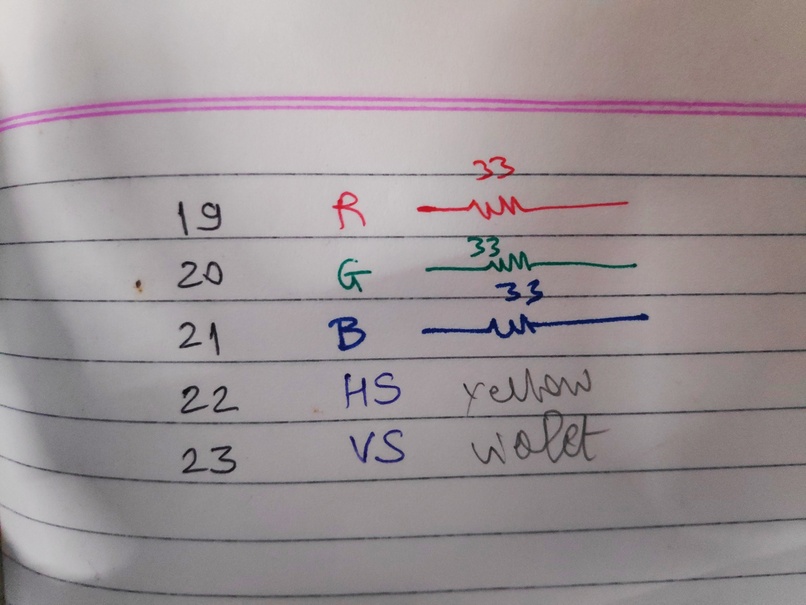 19 R 33
20 G 33
21 B 33
22 HS yellow
23 VS wolet